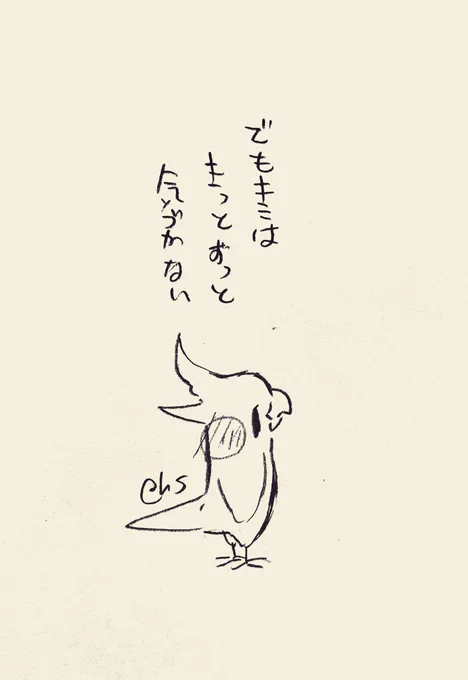 でもキミは
きっとずっと
気づかない
ehs